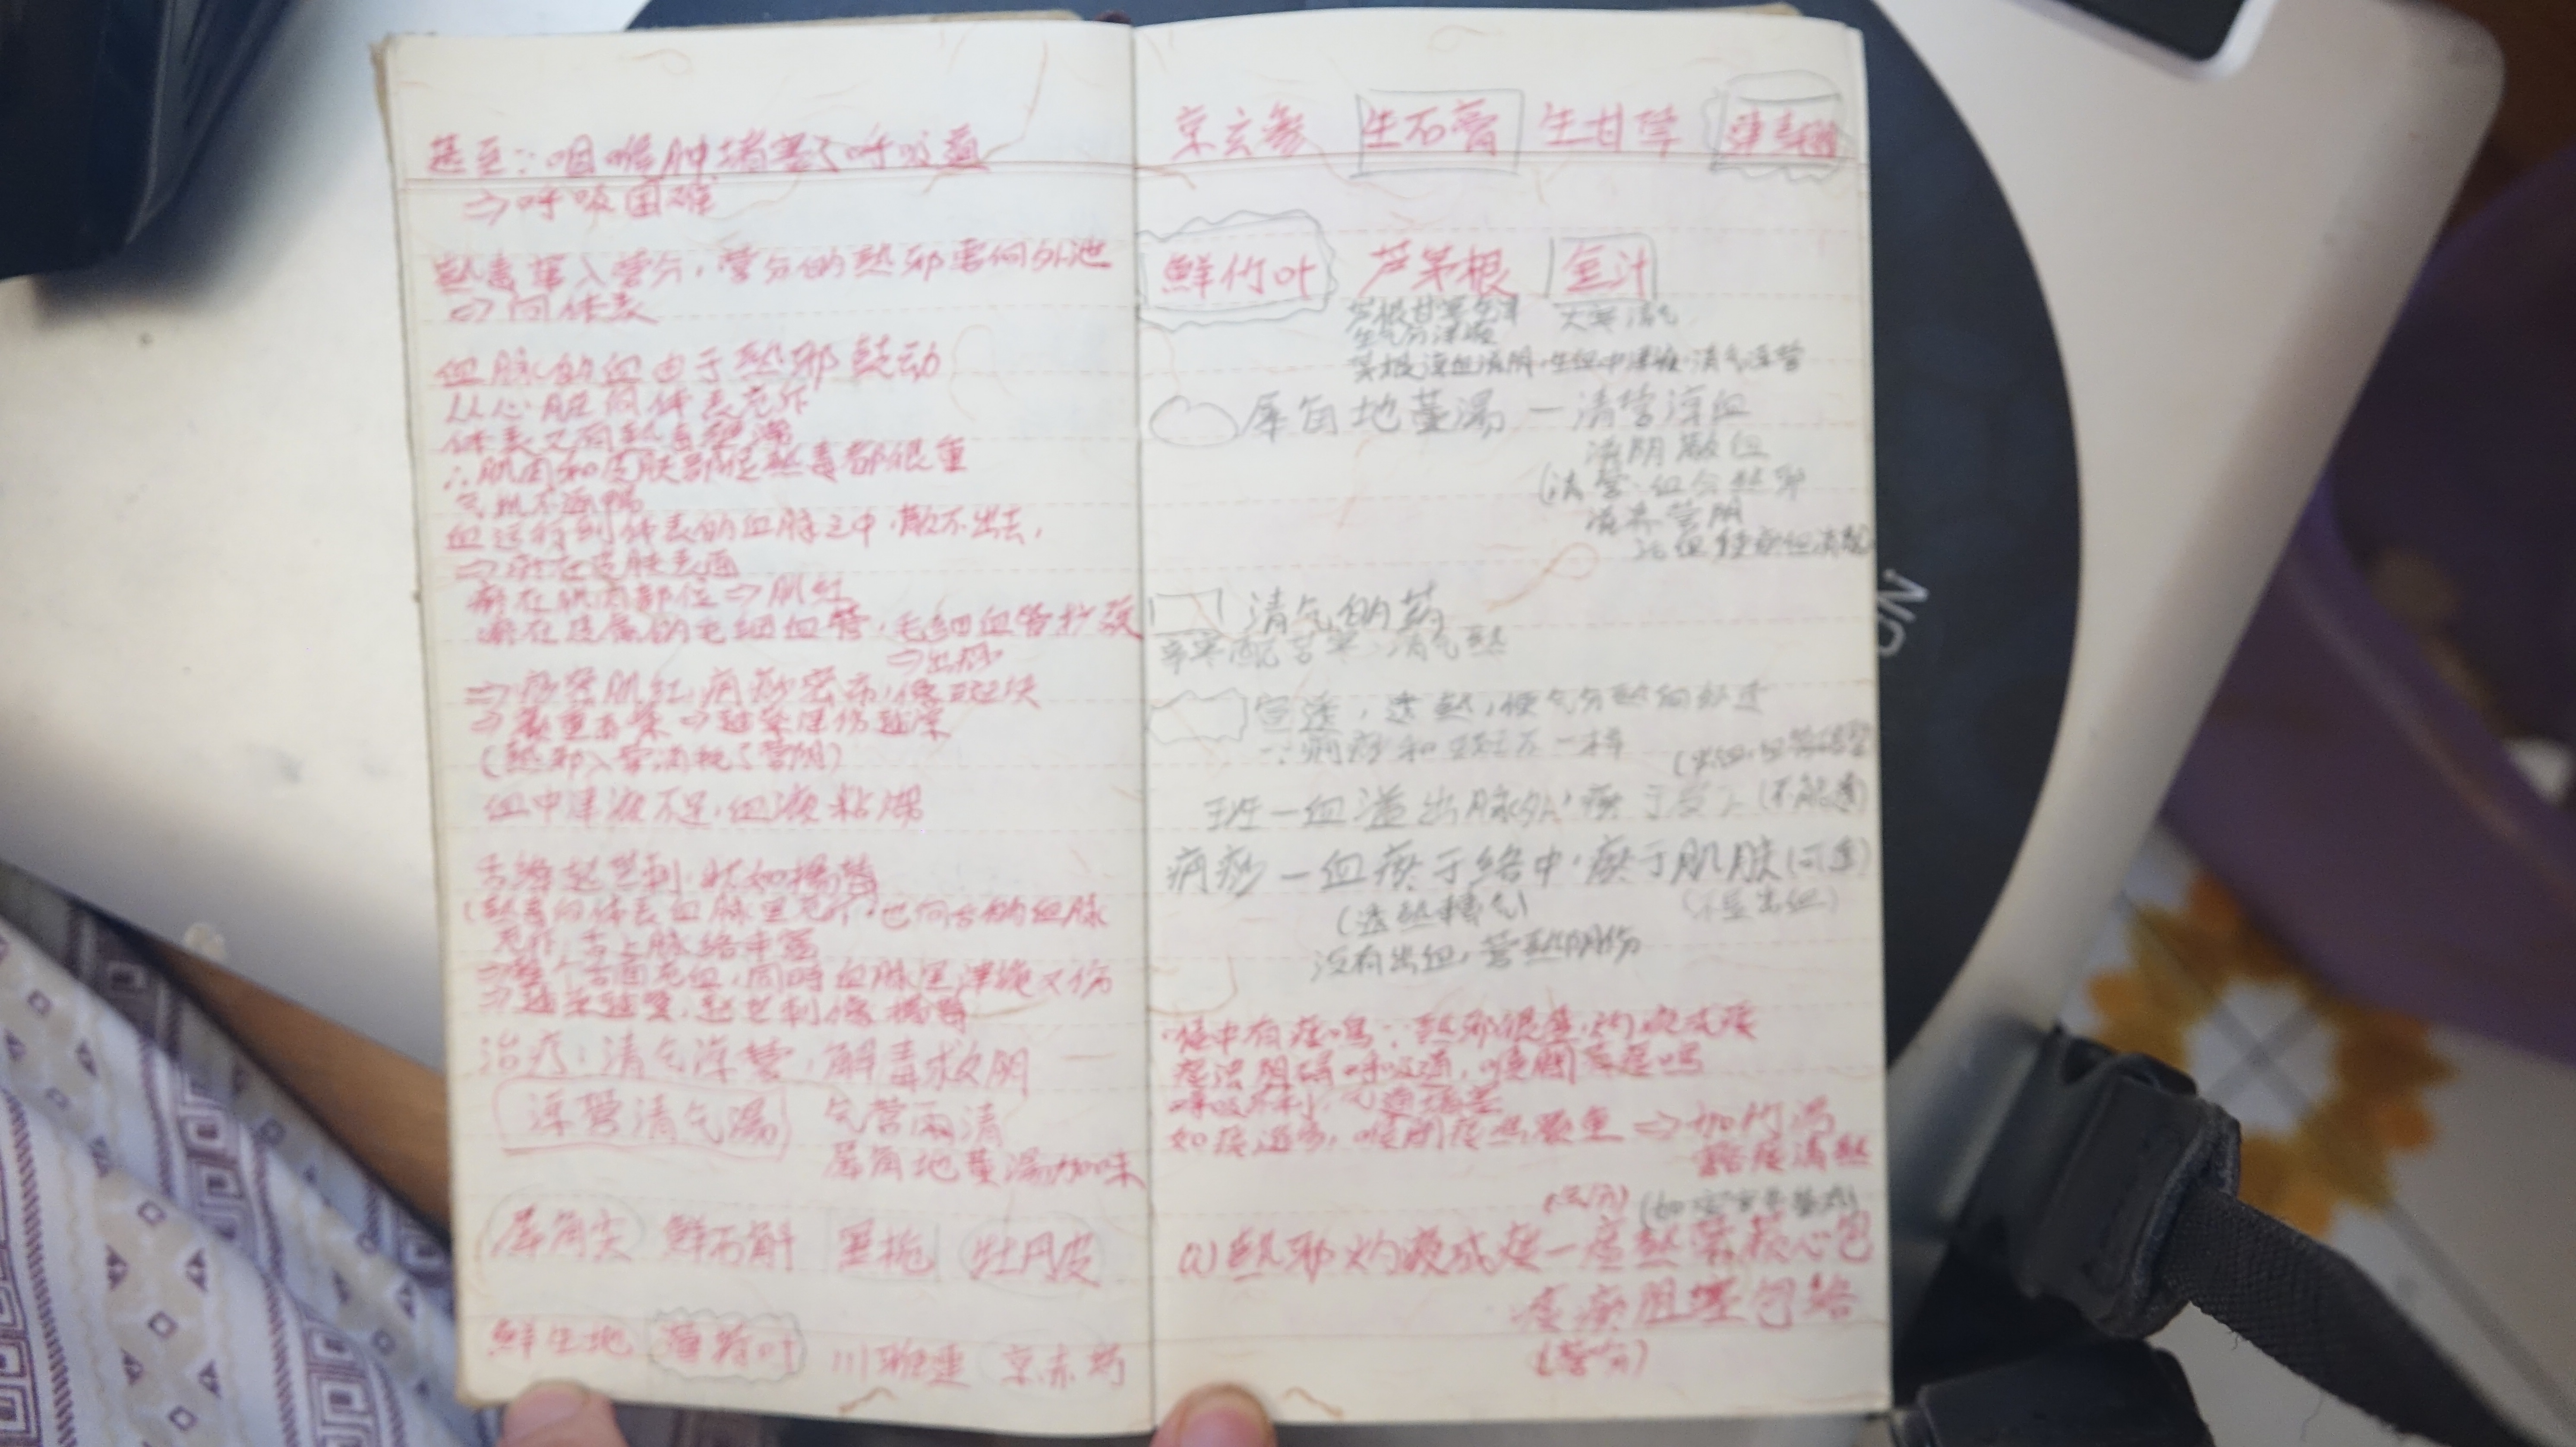 甚至：咽喉肿堵塞了呼吸道
⇒呼吸困难
热毒窜入营分，营分的热邪要向外泄
⇒向体表
血脉的血由于热邪鼓动
从心脏向体表充斥
体表又有热毒壅滞
∴肌肉和皮肤部位热毒都很重
气血不通畅
血运行到体表的血脉之中，散不出去，
⇒瘀在皮肤表面
瘀在肌肉部位⇒肌红
瘀在皮肤的毛细血管，毛细血管扩张
⇒出痧
⇒痧密肌红，病痧密布，像斑块
(热邪入营消耗了营阴)
血中津液不足，血液粘滞
舌绛起芒刺，状如杨梅
(热毒向体表血脉里充斥，也向舌的血脉
充斥，舌上脉络丰富
⇒整个舌面充血，同时血脉里津液又伤
⇒起芒刺像杨梅
治疗：清气凉营，解毒救阴 —
凉营清气汤 气营两清
犀角地黄汤加味
犀角尖 鲜石斛 黑栀 牡丹皮
鲜生地 薄荷叶 川雅连 京赤芍
京玄参 生石膏 生甘草
鲜竹叶 芦茅根 金汁
芦根甘寒生津 大寒清气
生气分津液
茅根凉血滋阴，生血中津液，清气凉营
犀角地黄汤 — 清营凉血
滋阴散血
(清营、血分热邪
滋养营阴
清气的药
辛寒配苦寒，清气热
宣透，透热，使气分热向外透
∵病痧和斑疹不一样
斑—血溢出脉外，瘀于 (不能透)
病痧—血瘀于络中，瘀于肌肤(可透)
(透热转气) (不是出血)
没有出血，营热阴伤
喉中有痰鸣：热邪很盛，灼液成痰
痰浊阻碍呼吸道，喉间痰鸣
呼吸不利
如痰过多，喉间痰热严重⇒加竹沥
豁痰清热
(气分)
a) 热邪灼液成痰—痰热蒙蔽心包
痰瘀阻塞包络
(营分)